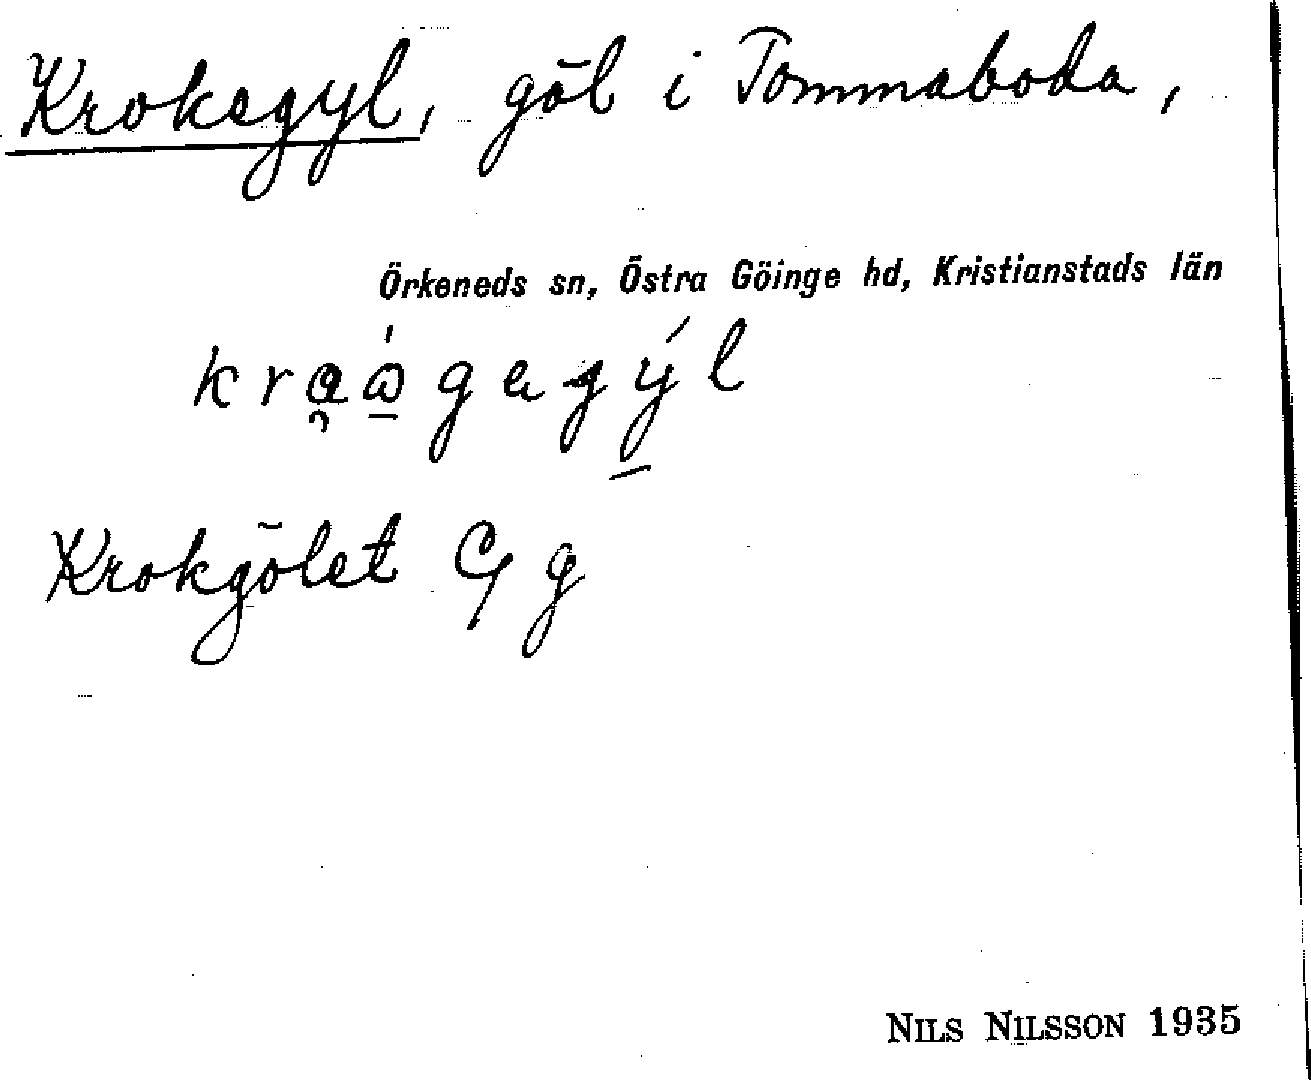 Krokagyl, göl i Tommaboda,
Örkeneds sn, Östra Göinge hd, Kristianstads län
Krokgölet Gg
NILS NILSSON 1935